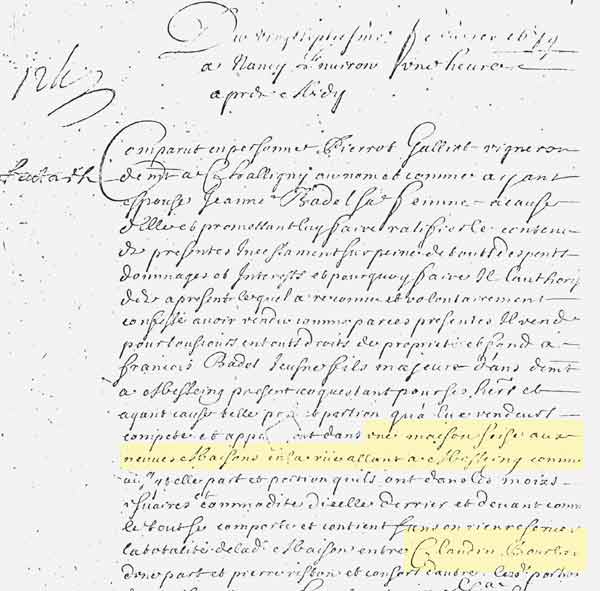 Du vingtseptiesme febvrier 1679
a Nancy environ une heure
apres Midy
Comparut en personne Pierrot Galliot vigneron
demt a Challigny au nom et comme ayant
espousé Jeanne Badel sa femme a cause
d'elle et promettant luy faire ratifier le contenu
de presentes Incessament sur peine de touts despens
dommages et Interests et pourquoy faire Il l'authorise
dez a present lequel a reconnu et volontairement
confessé avoir vendu comme par ces presentes Il vend
pour tousiours en touts droits de proprieté et fond a
francois Badel Jeusne fils majeur d'ans demt
a Messeing present acquestant pour ses hers et
ayant cause telle part et portion qu'a luy vendeur
compete et appartient dans une maison seise aux
neuves Maisons en la rüe allant a Messeing comme
aussy telle part et portion qu'ils ont dans les moises
usuaires commodité d'icelle derrier et devant comme
le tout se comporte et contient sans en rien reserver
la totalité de lade Maison entre Claudin Boucher
d'une part et pierre et consort d'autre portion